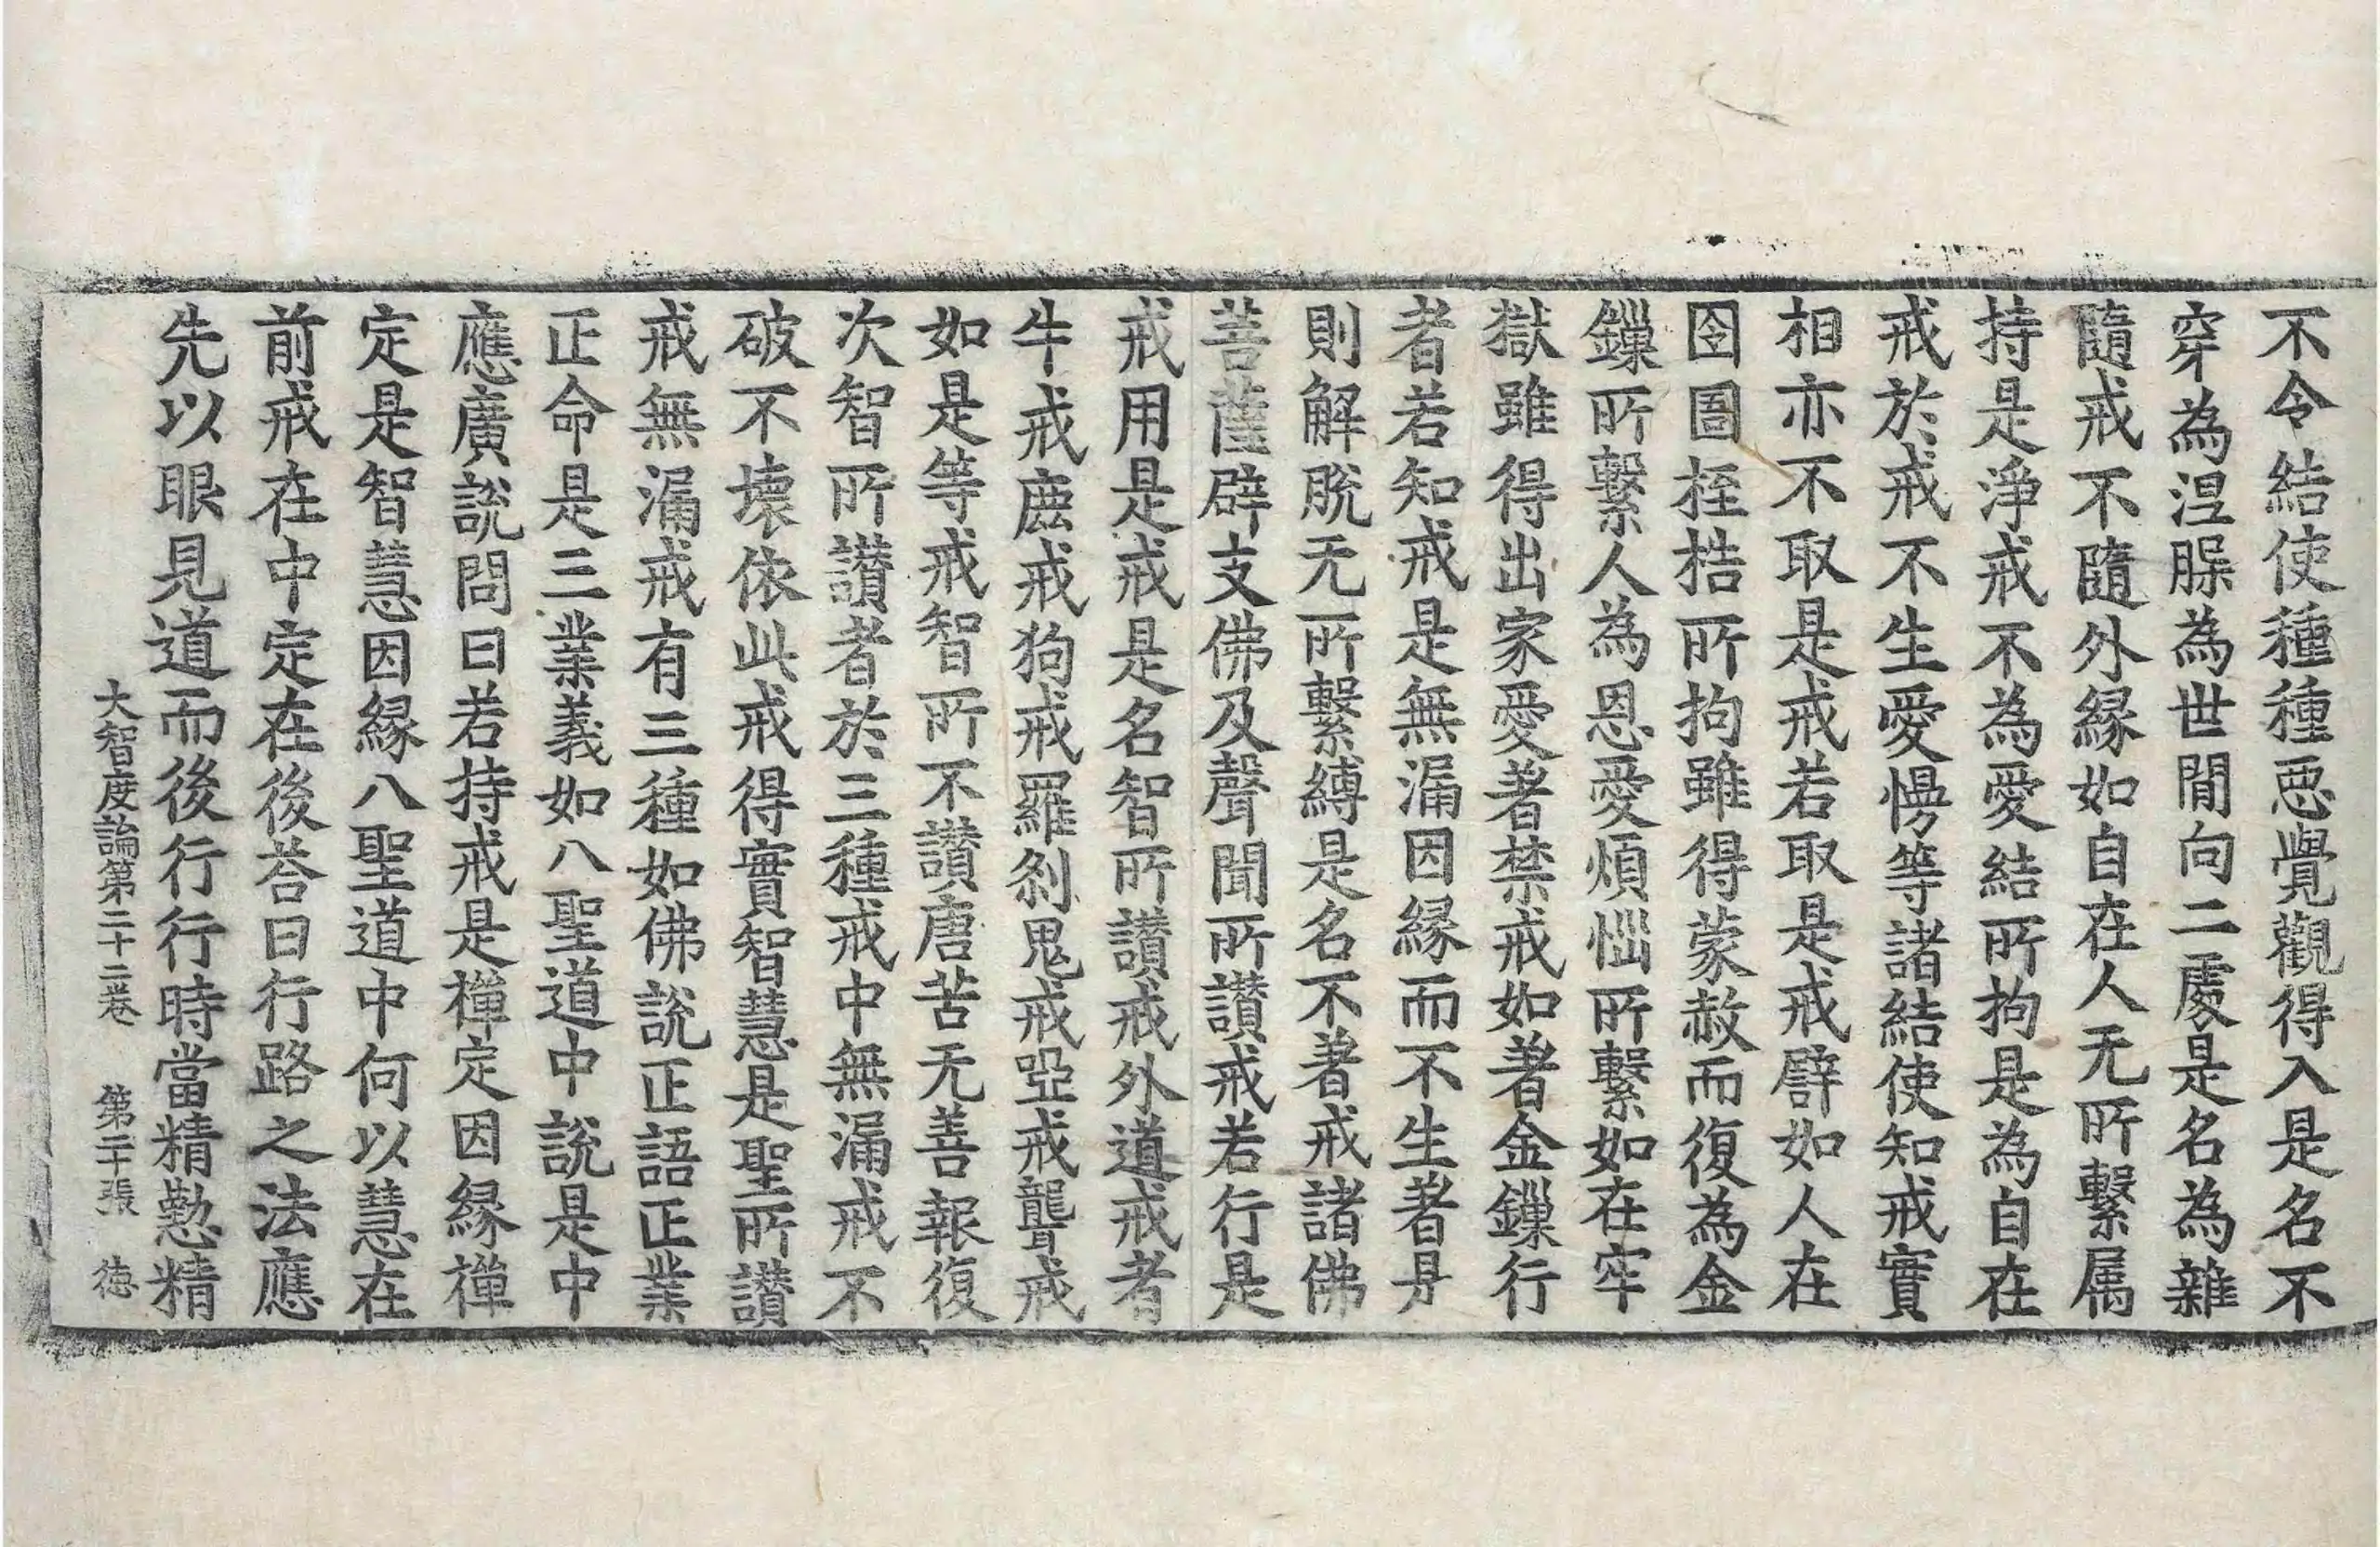 不令結使種種惡覺觀得入是名不
穿為涅槃為世間向二處是名為雜
隨戒不隨外緣如自在人无所繫属
持是淨戒不為愛結所拘是為自在
戒於戒不生愛慢等諸結使知戒實
相亦不取是戒若取是戒譬如人在
囹圄桎梏所拘雖得蒙赦而復為金
鏁所繫人為恩愛煩惱所繫如在牢
獄雖得出家愛著禁戒如著金鏁行
者若知戒是無漏因緣而不生著是
則解脫无所繫縛是名不著戒諸佛
菩薩辟支佛及聲聞所讚戒若行是
戒用是戒是名智所讚戒外道戒者
牛戒鹿戒狗戒羅剎鬼戒啞戒聾戒
如是等戒智所不讚唐苦无善報復
次智所讚者於三種戒中無漏戒不
破不壞依此戒得實智慧是聖所讚
戒無漏戒有三種如佛說正語正業
正命是三業義如八聖道中說是中
應廣說問曰若持戒是禪定因緣禪
定是智慧因緣八聖道中何以慧在
前戒在中定在後荅曰行路之法應
先以眼見道而後行行時當精懃精
大智度論第二十二卷　第二十張　德